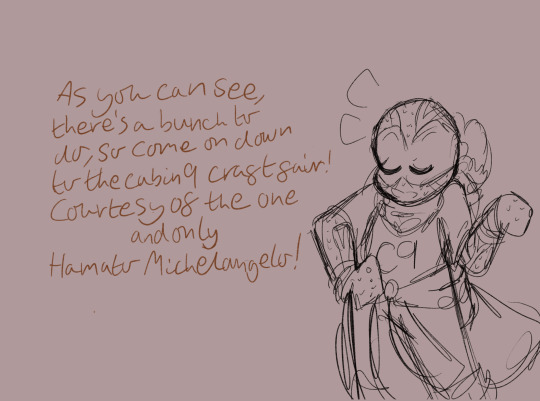 As you can see,
there's a bunch to
do, so come on down
to the cabin 9 craft fair!
Courtesy of the one
and only
Hamato Michelangelo!
C9